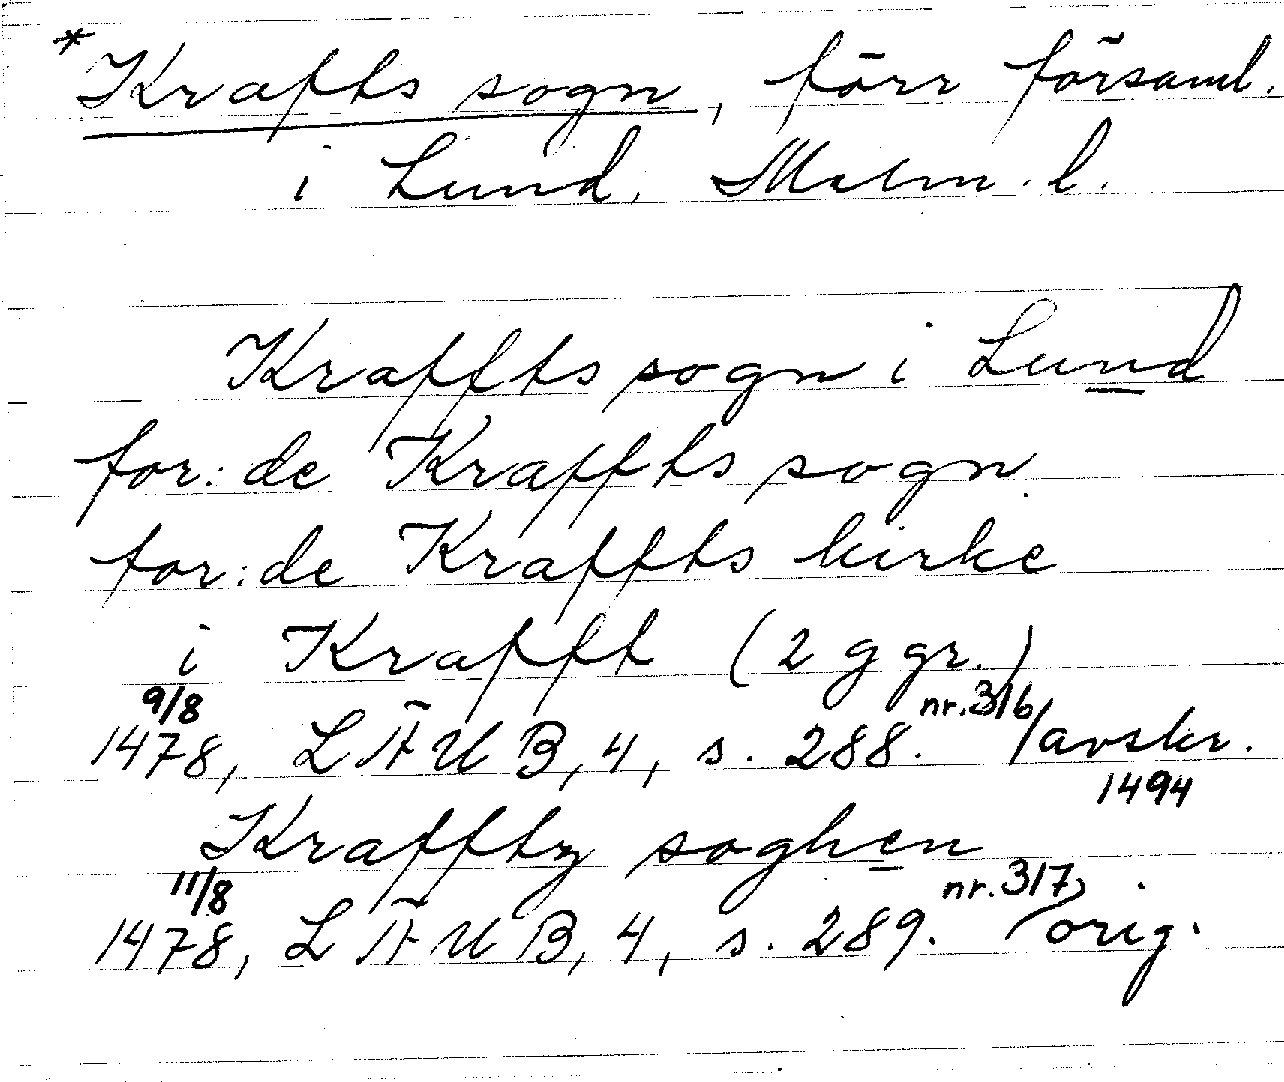 *Krafts sogn, förr församl.
i Lund. Malm. l.
Kraffts sogn i Lund
for:de Kraffts sogn
for:de Kraffts kirke
i Krafft (2 ggr.)
9/8
1478, LÄUB, 4, s. 288. nr. 316/avskr.
1494
Krafftz soghen
11/8
1478, LÄUB, 4, s. 289. nr. 317, orig.